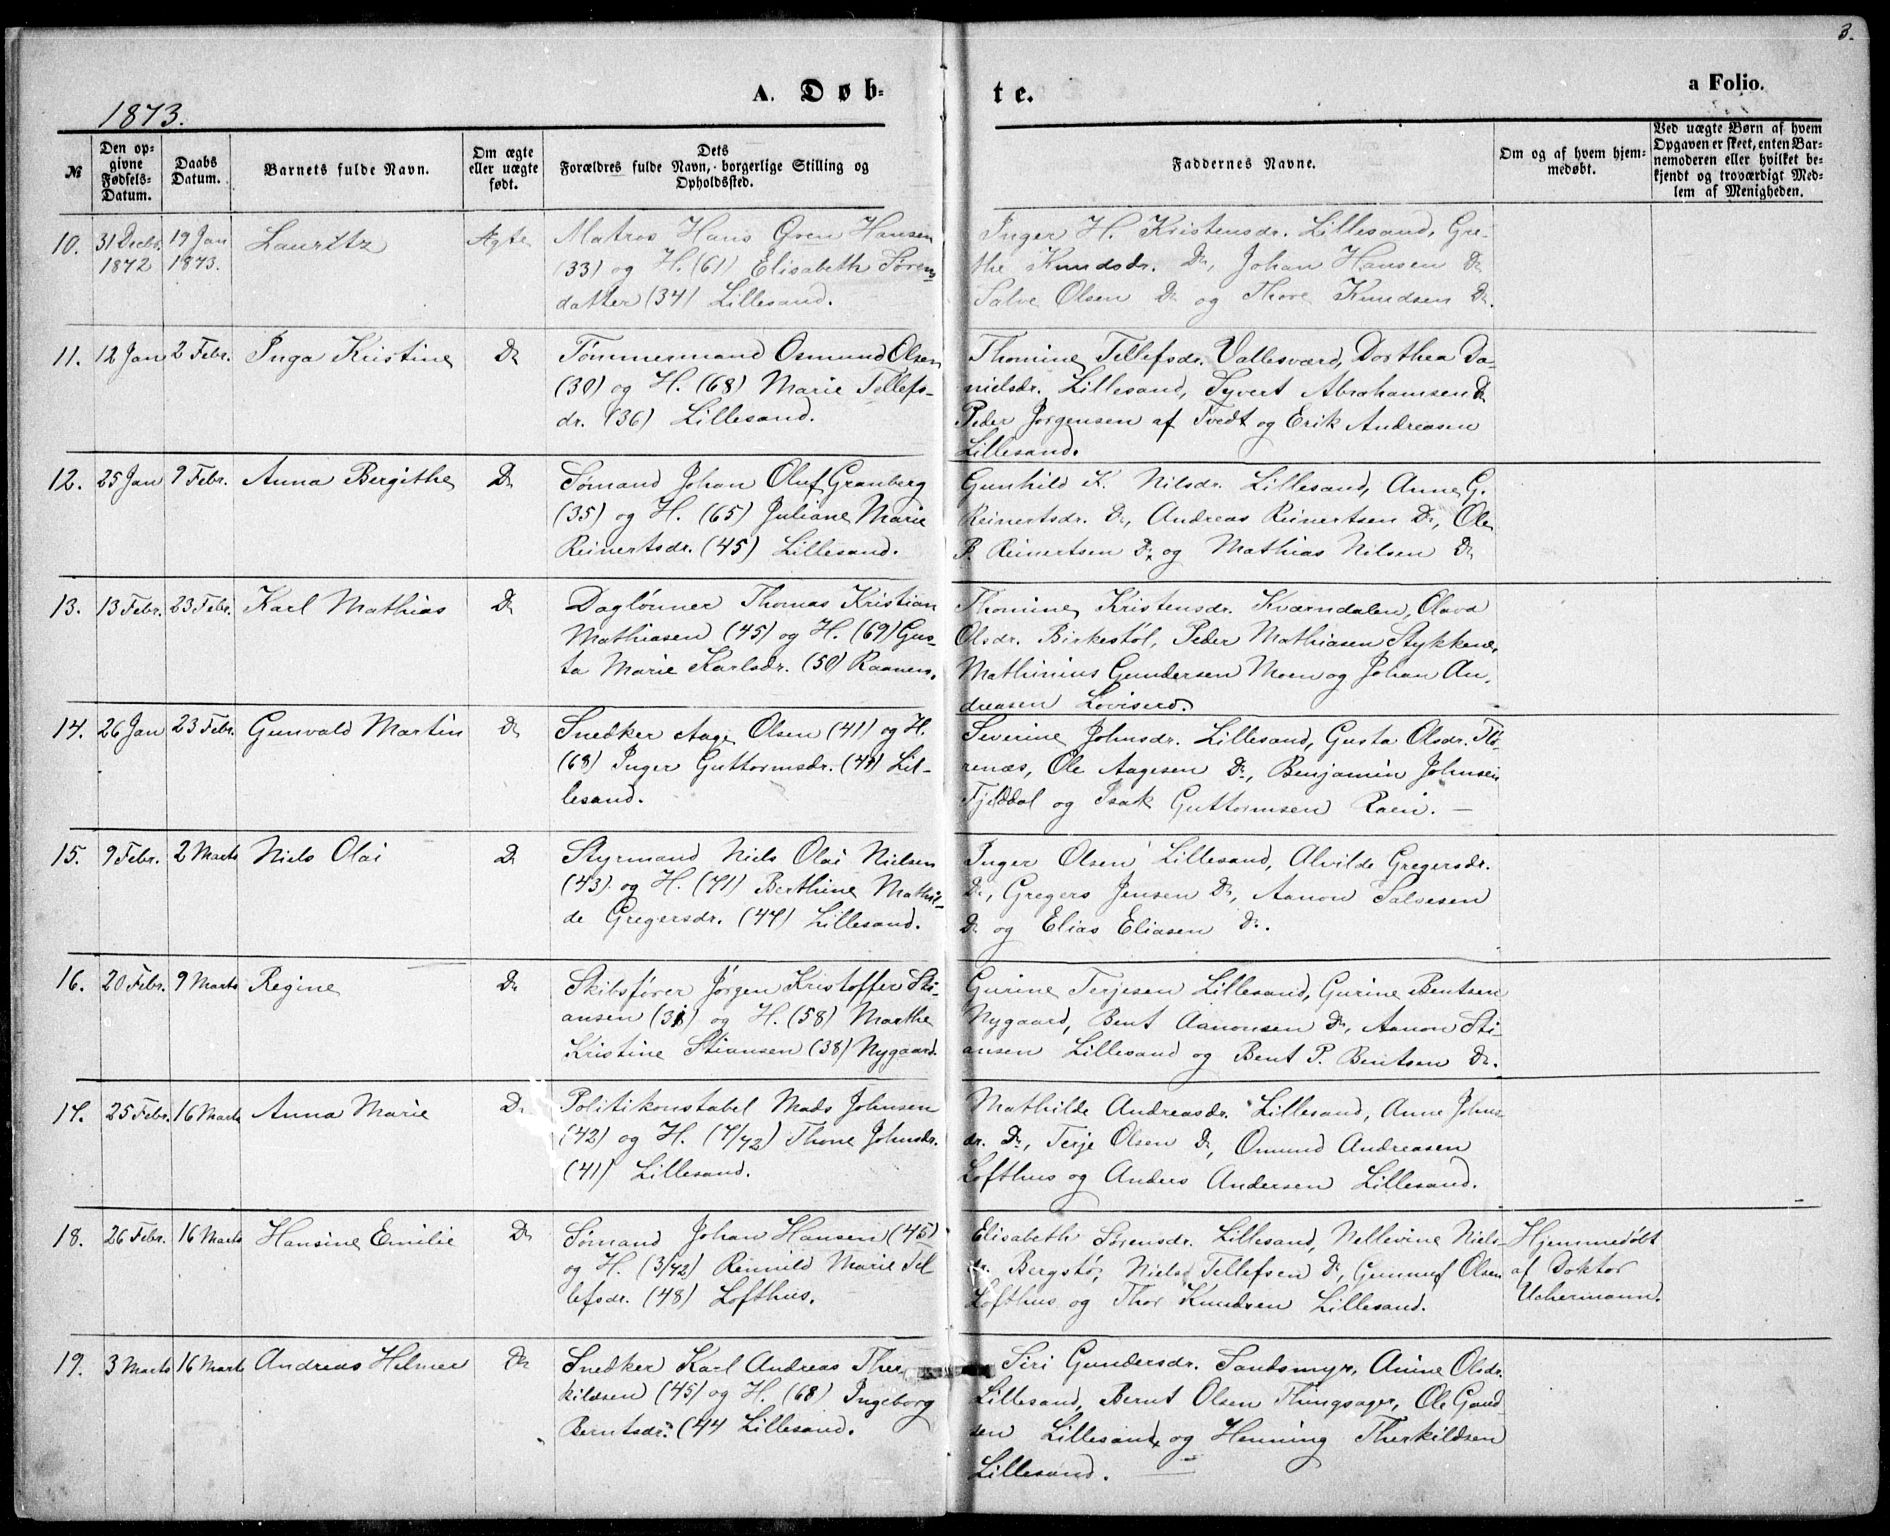 3.
1873.
A. Døb-
te.
a Folio.
№
Den op-
givne
Fødsels-
Datum.
Daabs
Datum.
Barnets fulde Navn.
Om ægte
eller uægte
født.
Dets
Forældres fulde Navn, borgerlige Stilling og
Opholdssted.
Faddernes Navne.
Om og af hvem hjem-
medøbt.
Ved uægte Børn af hvem
Opgaven er skeet, enten Bar-
nemoderen eller hvilket be-
kjendt og troværdigt Med-
lem af Menigheden.
10.
31 Decbr.
1872
19 Jan
1873.
Lauritz
Ægte
Matros Hans Oven Hansen
(33) og H. (61) Elisabeth Søren-
datter (34) Lillesand.
Inger H. Kristensdr. Lillesand, Gre-
the Knudsdr. Do, Johan Hansen Do
Salve Olsen Do og Thore Knudsen Do.
11.
12 Jan
2 Febr.
Inga Kristine
Do
Tømmermand Osmund Olsen
(30) og H. (68) Marie Tellefs-
dr. (36) Lillesand.
Thomine Tellefsdr. Vallesværd, Dorthea Da-
nielsdr. Lillesand, Syvert Abrahamsen Do
Peder Jørgensen af Tvedt og Erik Andreasen
Lillesand.
12.
25 Jan
9 Febr.
Anna Bergithe
Do
Sømand Johan Oluf Granberg
(35) og H. (65) Juliane Marie
Reinertsdr. (45) Lillesand.
Gunhild K. Nilsdr. Lillesand, Anne G.
Reinertsdr. Do, Andreas Reinertsen Do, Ole
P. Reinertsen Do og Mathias Nilsen Do
13.
13 Febr.
23 Febr.
Karl Mathias
Do
Daglønner Thomas Kristian
Mathiasen (45) og H. (69) Gus-
ta Marie Karlsdr. (50) Raanes.
Thomine Kristensdr. Kværndalen, Olava
Olsdr. Birkestøl, Peder Mathiasen Stykkene,
Mathinius Gundersen Moen og Johan An-
dreasen Løviserd.
14.
26 Jan
23 Febr.
Gunvald Martin
Do
Snedker Aage Olsen (41) og H.
(68) Inger Guttormsdr. (44) Lil-
lesand.
Severine Johnsdr. Lillesand, Gusta Olsdr. Flø-
renæs, Ole Aagesen Do, Benjamin Johnsen
Tjeldal og Isak Guttormsen Roen. —
15.
9 Febr.
2 Marts
Niels Olai
Do
Styrmand Niels Olai Nielsen
(43) og H. (71) Berthine Mathil-
de Gregersdr. (47) Lillesand.
Inger Olsen Lillesand, Alvilde Gregersdr.
Do, Gregers Jensen Do, Aanon Salvesen
Do og Elias Eliasen Do.
16.
20 Febr.
9 Marts
Regine
Do
Skibsfører Jørgen Kristoffer Sti-
ansen (31) og H. (58) Marthe
Kristine Stiansen (38) Nygaard.
Gurine Terjesen Lillesand, Gurine Bentsen
Nygaard, Bent Aanonsen Do, Aanon Sti-
ansen Lillesand og Bent P. Bentsen Do.
17.
25 Febr.
16 Marts
Anna Marie
Do
Politikonstabel Mads Johnsen
(42) og H. (7/72) Thone Johnsdr.
(41) Lillesand.
Mathilde Andreasdr. Lillesand, Anne Johns-
dr. Do, Terje Olsen Do, Omund Andreasen
Lofthus og Anders Andersen Lillesand.
18.
26 Febr.
16 Marts
Hansine Emilie
Do
Sømand Johan Hansen (45)
og H. (3/72) Reinild Marie Tel
lefsdr. (48) Lofthus.
Elisabeth Sørensdr. Lillesand, Nellevine Niels-
dr. Bergstø, Niels Tellefsen Do, Gunnuf Olsen
Lofthus og Thor Knudsen Lillesand.
Hjemmedøbt
af Doktor
Uchermann.
19.
3 Marts
16 Marts
Andreas Helmer
Do
Snedker Karl Andreas Ther-
kildsen (45) og H. (68) Ingeborg
Berntsdr. (44 Lillesand.
Siri Gundersdr. Sandsmyr, Anine Olsdr.
Lillesand, Bernt Olsen Thingsager, Ole Gund-
sen Lillesand og Henning Therkildsen
Lillesand.